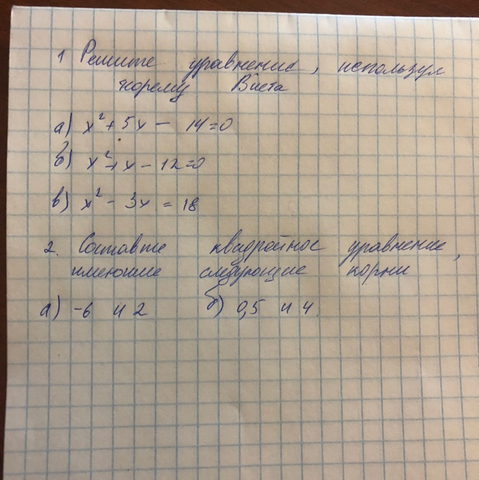 1 Решите уравнение, используя
теорему Виета
а) x² + 5x - 14 = 0
б) x² + x - 12 = 0
в) x² - 3x = 18
2. Составте квадратное уравнение,
имеющие следующие корни
а) -6 и 2 б) 0,5 и 4